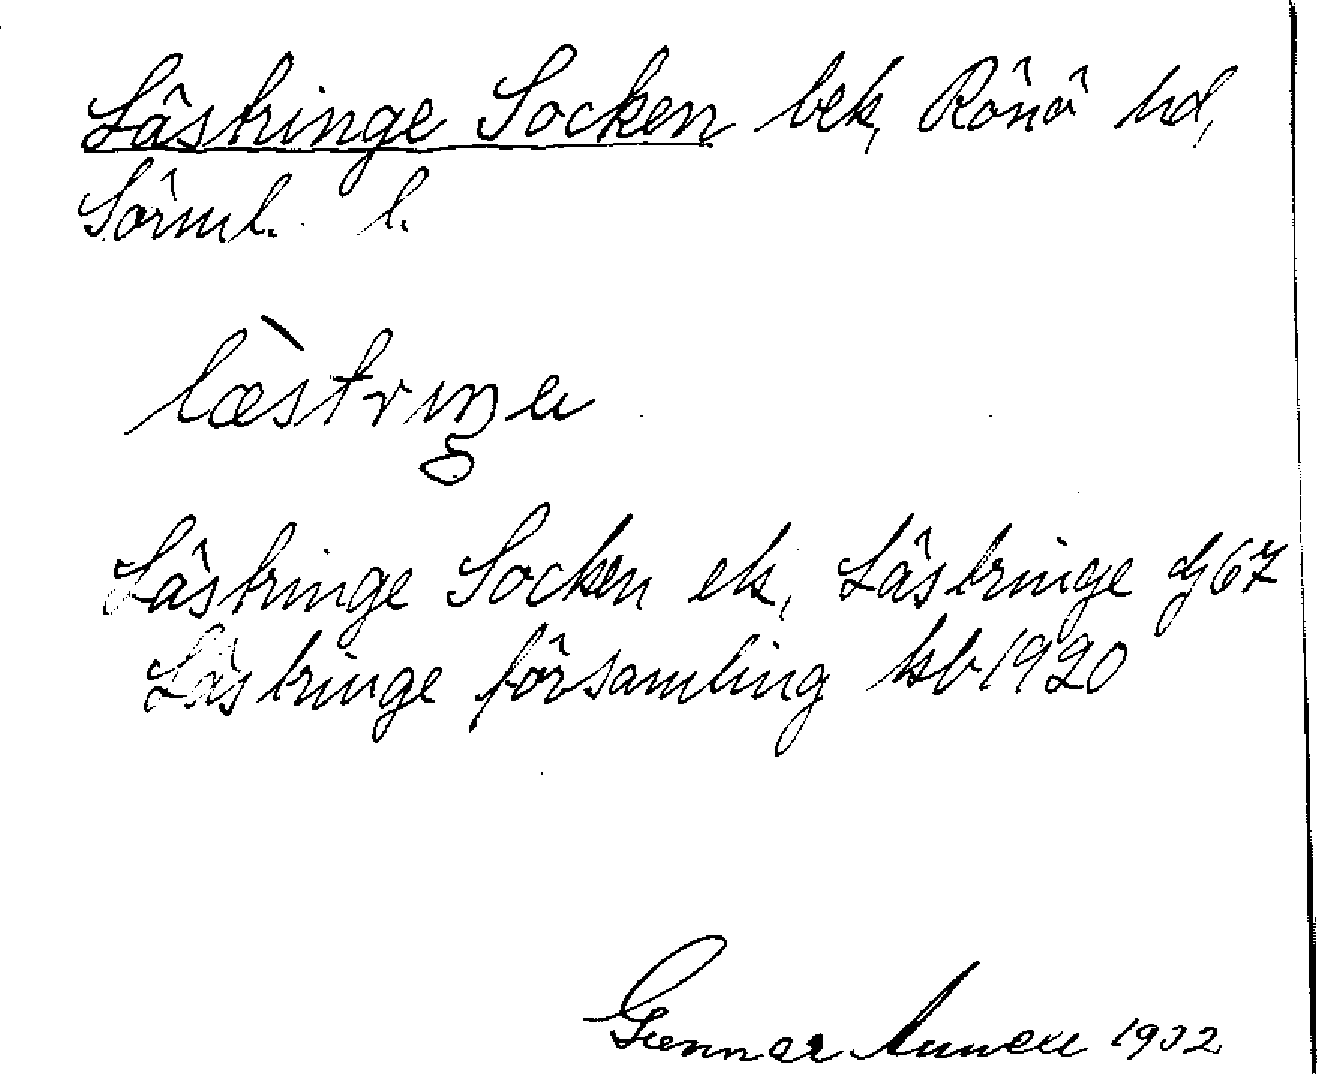 Lästringe Socken bek, Rönö hd,
Sörml. l.
læstriŋe
Lästringe Socken ek, Lästringe dj 67
Lästringe församling kb 1920
Gunnar 1932